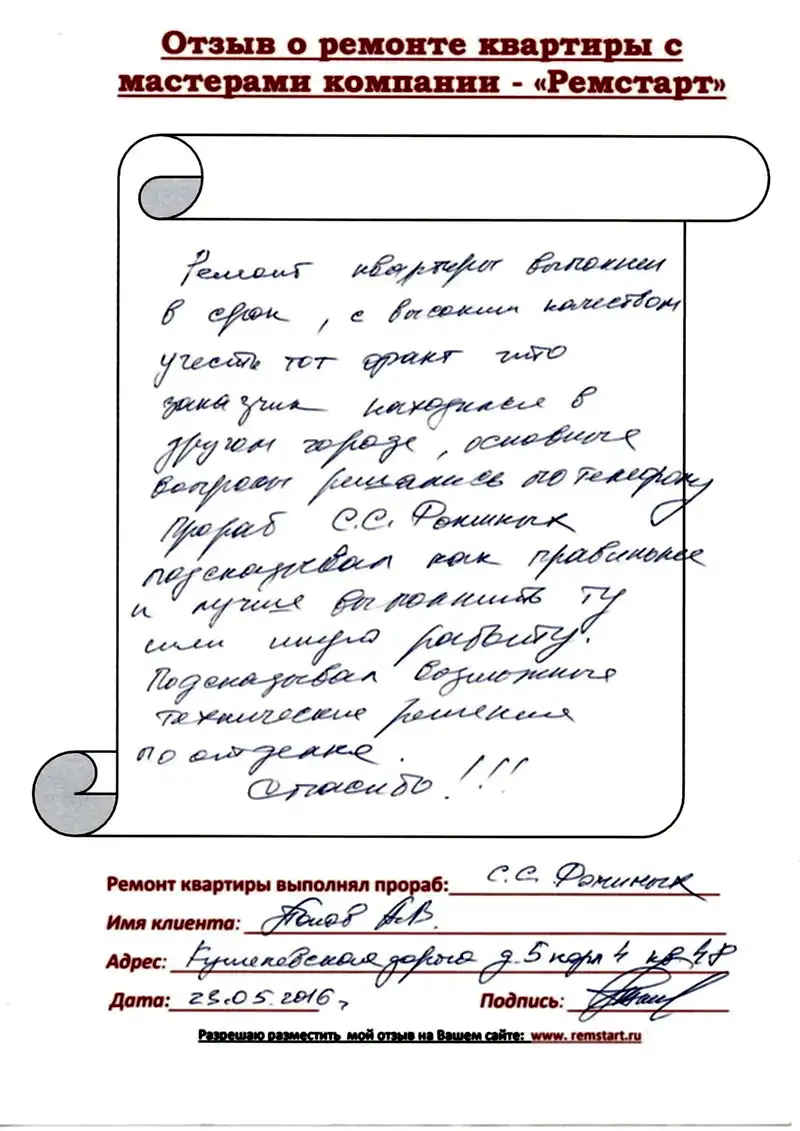 Отзыв о ремонте квартиры с
мастерами компании - «Ремстарт»
Ремонт квартиры выполнен
в срок, с высоким качеством
учесть тот факт что
заказчик находился в
другом городе, основные
вопросы решались по телефону
Прораб С.С. Фоминых
подсказывал как правильнее
и лучше выполнить ту
или иную работу.
Подсказывал возможные
технические решения
по отделке.
Спасибо!!!
Ремонт квартиры выполнял прораб: С.С. Фоминых
Имя клиента: Попов А.В.
Адрес: Кушелевская дорога д.5 корп 4 кв 48
Дата: 23.05.2016 г,
Подпись:
Разрешаю разместить мой отзыв на Вашем сайте: www. remstart.ru